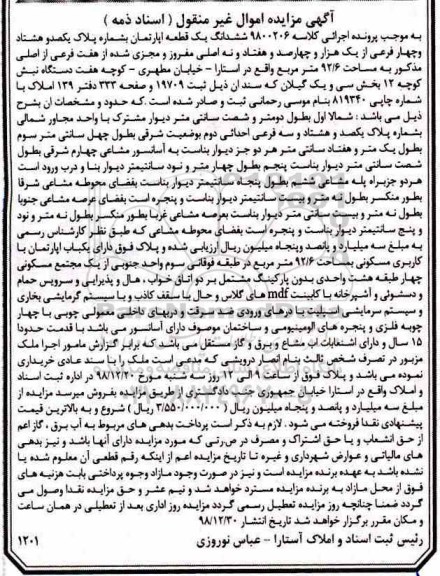 آگهی مزایده اموال غیر منقول ( اسناد ذمه )
به موجب پرونده اجرائی کلاسه ۹۸۰۰۲۰۶ ششدانگ یک قطعه اپارتمان بشماره پلاک یکصدو هشتاد
وچهار فرعی از یک هزار و چهارصد و هفتاد و نه اصلی مفروز و مجزی شده از هفت فرعی از اصلی
مذکور به مساحت ۹۲/۶ متر مربع واقع در استارا - خیابان مطهری - کوچه هفت دستگاه نبش
کوچه ۱۲ بخش سی و یک گیلان که سند ان ذیل ثبت ۱۹۷۰۹ و صفحه ۳۳۳ دفتر ۱۳۹ املاک با
شماره چاپی ۸۱۹۳۴۰ بنام موسی رحمانی ثبت و صادر شده است .که حدود و مشخصات ان بشرح
ذیل می باشد : شمالا اول بطول دومتر و شصت سانتی متر دیوار مشترک با واحد مجاور شمالی
بشماره پلاک یکصد و هشتاد و سه فرعی احداثی دوم بوضعیت شرقی بطول چهل سانتی متر سوم
بطول یک متر و هفتاد سانتی متر هر دو جز دیوار بناست به آسانسور مشاعی چهارم شرقی بطول
شصت سانتی متر دیوار بناست پنجم بطول چهار متر و نود سانتیمتر دیوار بنا و درب ورود است
هردو جزبراه پله مشاعی ششم بطول پنجاه سانتیمتر دیوار بناست بفضای محوطه مشاعی شرقا
بطور منکسر بطول نه متر و بیست سانتیمتر دیوار بناست و پنجره است بفضای عرصه مشاعی جنوبا
بطول نه متر و بیست سانتی متر دیوار بناست بعرصه مشاعی غربا بطور منکسر بطول نه متر و نود
و پنج سانتیمتر دیوار بناست و پنجره است بفضای محوطه مشاعی که طبق نظر کارشناس رسمی
به مبلغ سه میلیارد و پانصد وپنجاه میلیون ریال ارزیابی شده و پلاک فوق دارای یکباب اپارتمان با
کاربری مسکونی بمساحت ۹۲/۶ متر مربع در طبقه فوقانی سوم واحد جنوبی از یک مجتمع مسکونی
چهار طبقه هشت واحدی بدون پارکینگ مشتمل بر دو اتاق خواب ، هال و پذیرایی و سرویس حمام
و دستشوئی و آشپرخانه با کابینت mdf های گلاس و حال با سقف کاذب و با سیستم گرمایشی بخاری
و سیستم سرمایشی اسپلیت با درهای ورودی ضد سرقت و دربهای داخلی معمولی چوبی با چهار
چوبه فلزی و پنجره های الومینیومی و ساختمان موصوف دارای آسانسور می باشد با قدمت حدودا
۱۵ سال و دارای اشتعابات اب مشاع و برق و گاز مستقل می باشد که برابر گزارش مامور اجرا ملک
مزبور در تصرف شخص ثالث بنام انصار درویشی که مدعی است ملک را با سند عادی خریداری
نموده می باشد و پلاک فوق از ساعت ۹ الی ۱۲ روز سه شنبه مورخ ۹۸/۱۲/۲۰ در اداره ثبت اسناد
و املاک واقع در استارا خیابان جمهوری جنب دادگستری ازطریق مزایده بفروش میرسد مزایده از
مبلغ سه میلیارد و پانصد و پنجاه میلیون ریال ( ۳/۵۵۰/۰۰۰/۰۰۰ ریال ) شروع و به بالاترین قیمت
پیشنهادی نقدا فروخته می شود . لازم به ذکر است پرداخت بدهی های مربوط به آب برق ، گاز اعم
از حق انشعاب و یا حق اشتراک و مصرف در صورتی که مورد مزایده دارای آنها باشد و نیز بدهی
های مالیاتی و عوارض شهرداری و غیره تا تاریخ مزایده اعم از اینکه رقم قطعی آن معلوم شده یا
نشده باشد به عهده برنده مزایده است و نیز در صورت وجود مازاد وجوه پرداختی بابت هزینه های
فوق از محل مازاد به برنده مزایده مسترد خواهد شد و نیم عشر و حق مزایده نقدا وصول می
گردد ضمنا چنانچه روز مزایده تعطیل رسمی گردد مزایده روز اداری بعد از تعطیلی در همان ساعت
و مکان مقرر برگزار خواهد شد تاریخ انتشار ۹۸/۱۲/۳۰
رئیس ثبت اسناد و املاک آستارا - عباس نوروزی ۱۲۰۱